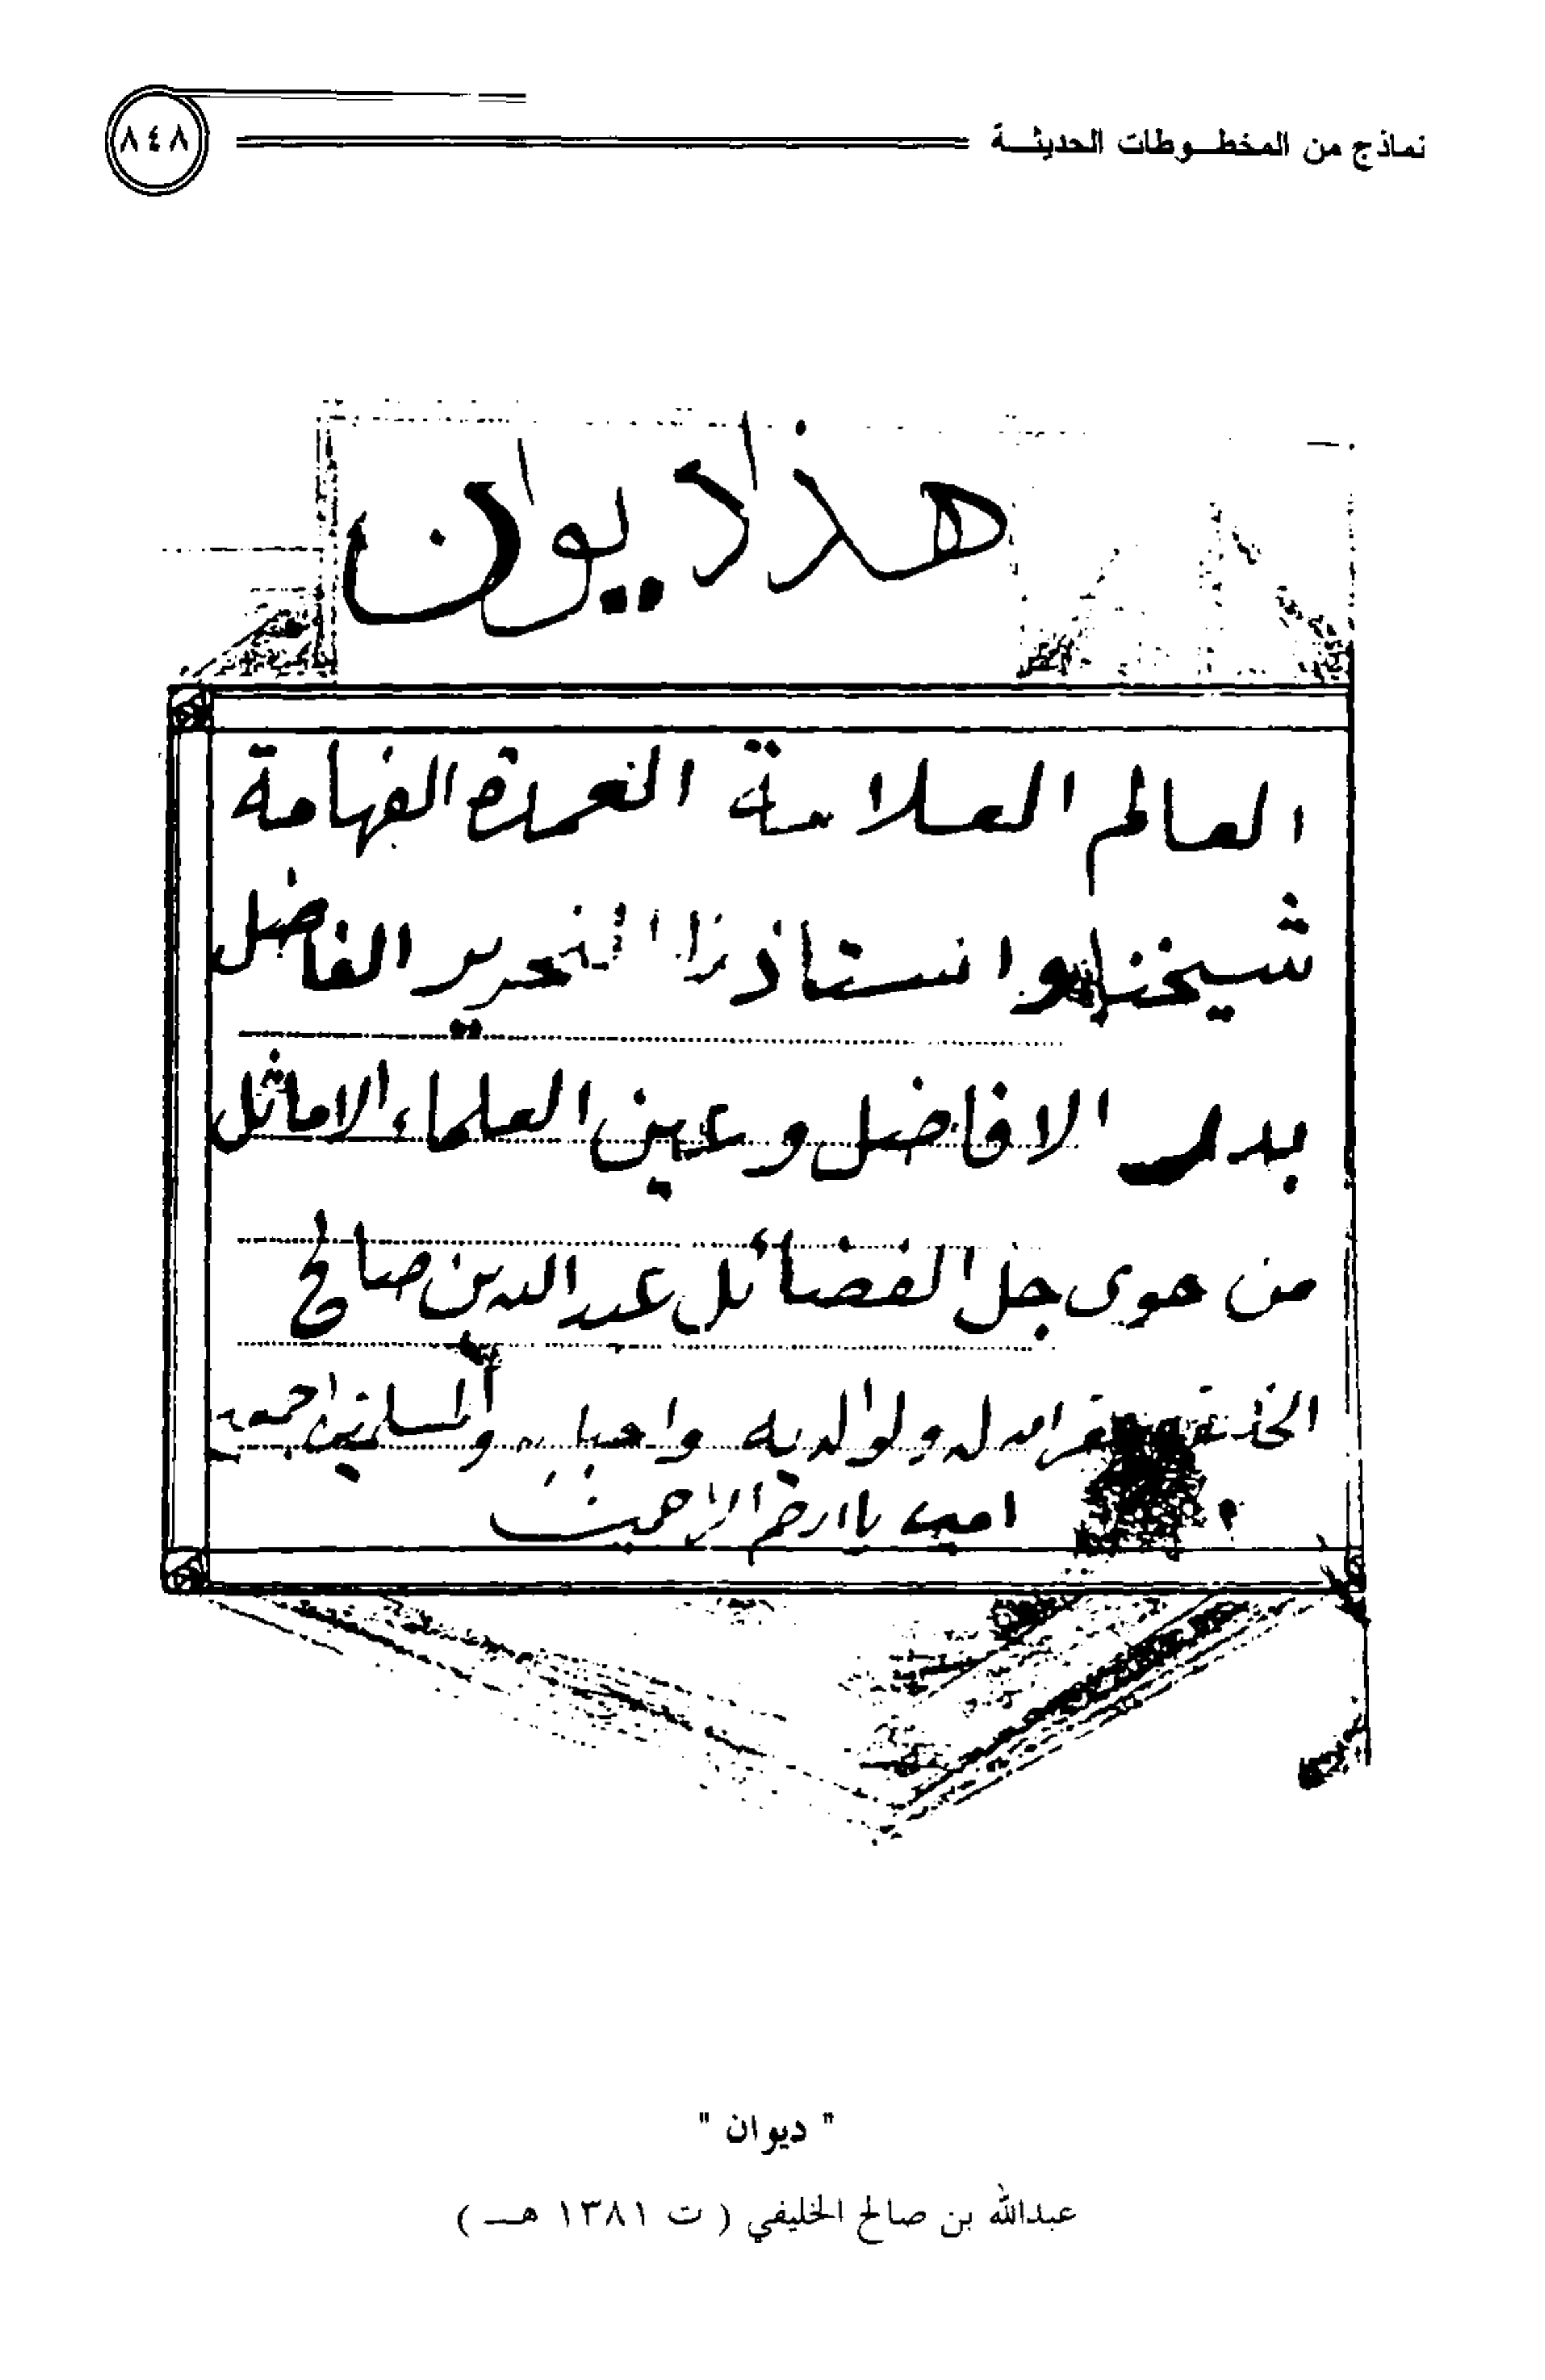 نماذج من المخطــوطات الحديثــة
٨٤٨
هذا ديوان
العالم العلامة العمدة الفهامة
شيخنا واستاذنا النحرير الفاضل
بدر الافاضل وعين العلماء الاماثل
من حوى جل الفضائل عبد الله بن صالح
الله له ولوالديه واحبابه والمسلمين اجمعين
امين يا ارحم الراحمين
" ديوان "
عبدالله بن صالح الخليفي ( ت ١٣٨١ هــ )